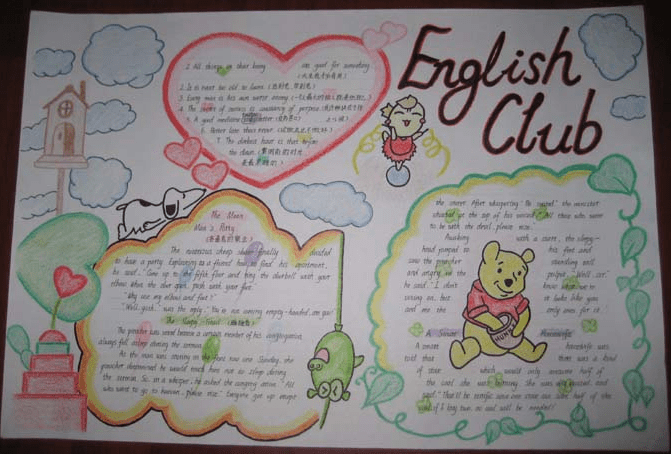 English
Club
1. All things in their being are good for something.
2. It is never too old to learn.
3. Every man is his own worst enemy.
4. The secret of success is constancy of purpose.
5. A good medicine tastes bitter.
6. Better late than never.
7. The darkest hour is that before
the dawn.
The Mean
Man's Party
The notorious cheap skate finally decided
to have a party. Explaining to a friend how to find his apartment,
he said, "Come up to the fifth floor and ring the doorbell with your
elbow. When the door opens, push with your foot."
"Why use my elbow and foot?"
"Well, gosh," was the reply, "You're not coming empty-handed, are you?"
The Sleepy-Head
The preacher was vexed because a certain member of his congregation
always fell asleep during the sermon.
As the man was snoring in the front row one Sunday, the
preacher determined he would teach him not to sleep during
the sermon. So, in a whisper, he asked the congregation, "All
who want to go to heaven, please rise." Everyone got up except
the snorer. After whispering "Be seated", the minister
shouted at the top of his voice, "All those who want
to be with the devil, please rise."
Awaking with a start, the sleepy-
head jumped to his feet and
saw the preacher standing tall
and angry in the pulpit. "Well, sir,"
he said, "I don't know what we're
voting on, but it looks like you
and me are the only ones for it."
A Smart Housewife
A smart housewife was
told that there was a kind
of stove which would only consume half of
the coal she was burning. She was very excited, and
said, "That'll be terrific! Since one stove can save half of the
coal, if I buy two, no coal will be needed!"